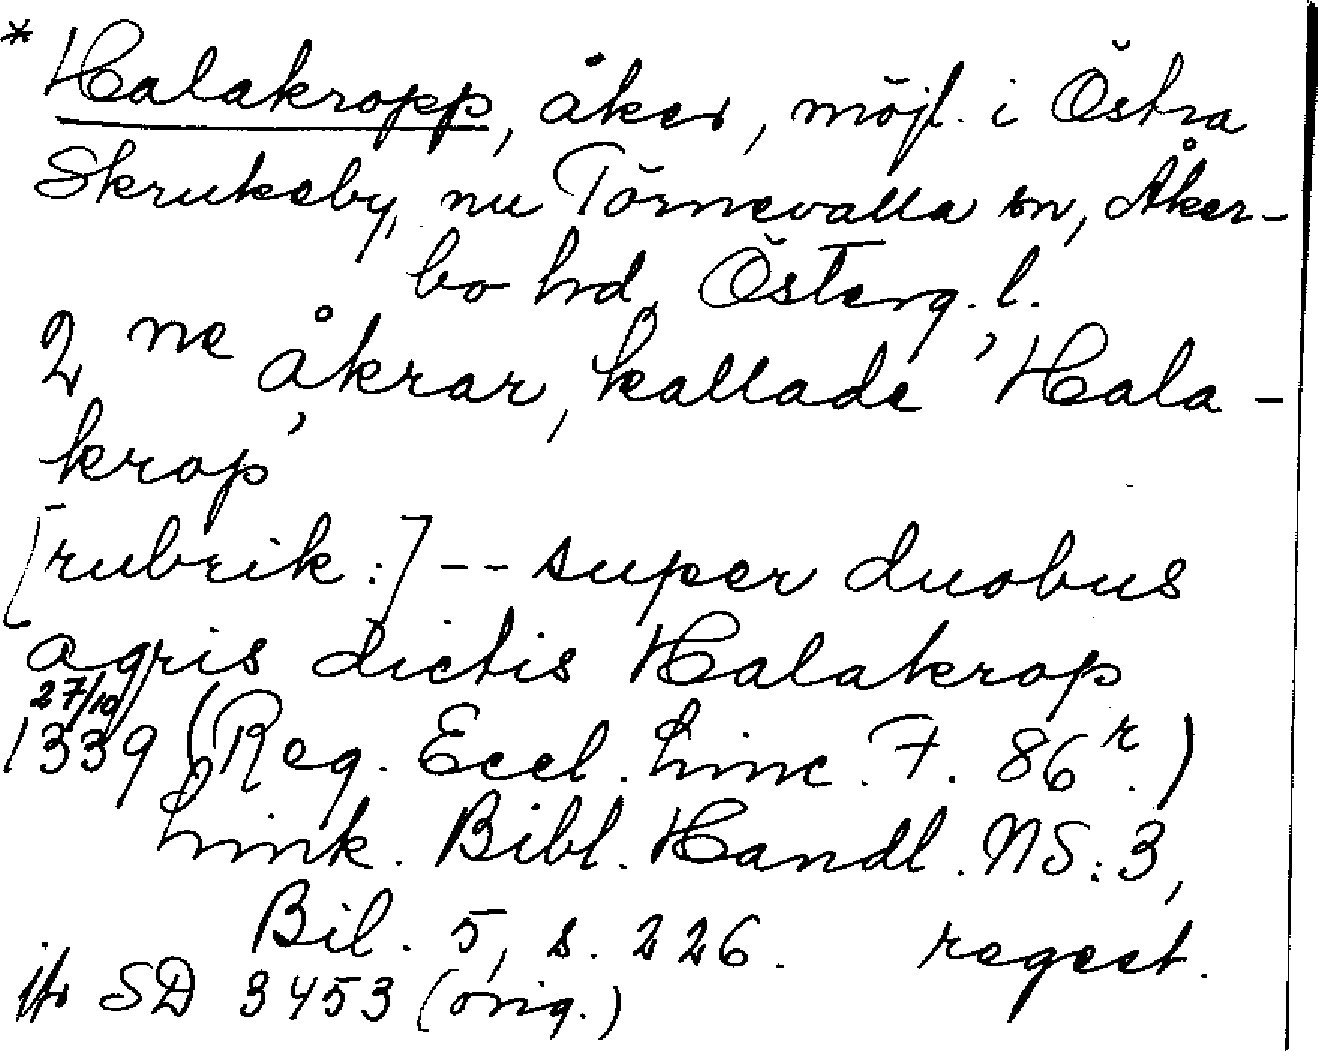 * Halakropp, åker, möjl. i Östra
Skrukeby, nu Törnevalla sn, Åker-
bo hd, Österg. l.
2 ne åkrar, kallade 'Hala-
krop'
[rubrik:] -- super duobus
agris dictis Halakrop
27/10
1339 (Reg. Eccl. Linc. F. 86r.)
Link. Bibl. Handl. NS: 3,
Bil. 5, s. 226. regest.
jfr SD 3453 (orig.)